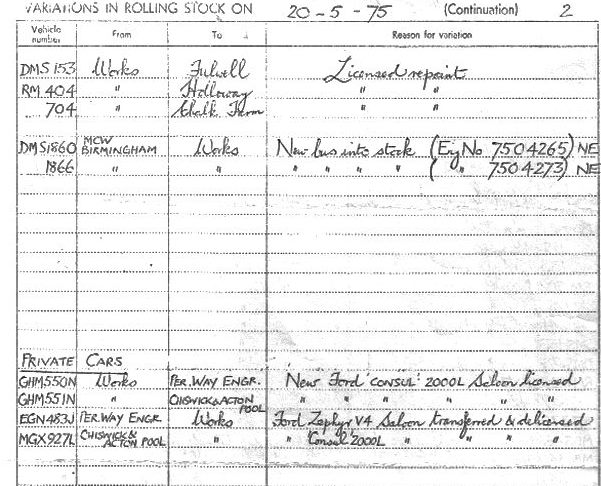 VARIATIONS IN ROLLING STOCK ON 20-5-75 (Continuation) 2
Vehicle number From To Reason for variation
DMS 153 Works Fulwell Licensed repaint
RM 404 " Holloway " "
704 " Chalk Farm " "
DMS1860 MCW BIRMINGHAM Works New bus into stock (Eng No 7504265) NE
1866 " " " " " " ( " 7504273) NE
PRIVATE CARS
GHM550N Works PER. WAY ENGR. New Ford 'CONSUL' 2000L Saloon licensed
GHM551N " CHISWICK & ACTON POOL " " " " " "
EGN483J PER. WAY ENGR. Works Ford Zephyr V4 Saloon transferred & delicensed
MGX927L CHISWICK & ACTON POOL " " 'Consul' 2000L " " " "